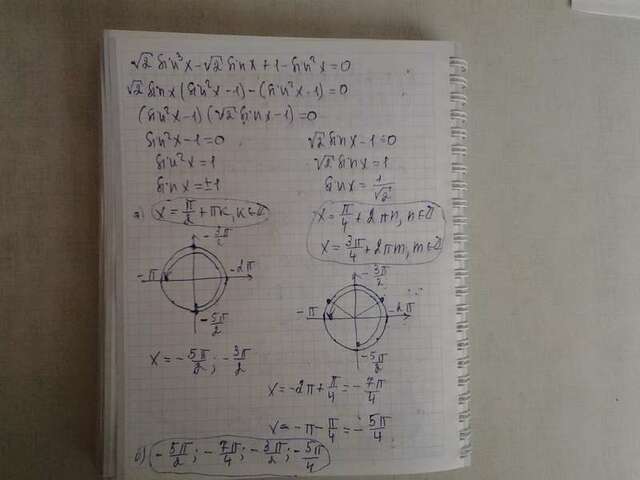 √2 sin³x - √2 sinx + 1 - sin²x = 0
√2 sinx (sin²x - 1) - (sin²x - 1) = 0
(sin²x - 1)(√2 sinx - 1) = 0
sin²x - 1 = 0
sin²x = 1
sinx = ±1
а) x = π/2 + πk, k∈Z
√2 sinx - 1 = 0
√2 sinx = 1
sinx = 1/√2
x = π/4 + 2πn, n∈Z
x = 3π/4 + 2πm, m∈Z
-3π/2
-π -2π
-5π/2
x = -5π/2; -3π/2
-3π/2
-π -2π
-5π/2
x = -2π + π/4 = -7π/4
x = -π - π/4 = -5π/4
б) -5π/2; -7π/4; -3π/2; -5π/4